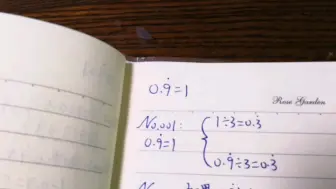 0.9̇=1
Rose Garden
No.001:
0.9̇=1
1÷3=0.3̇
0.9̇÷3=0.3̇